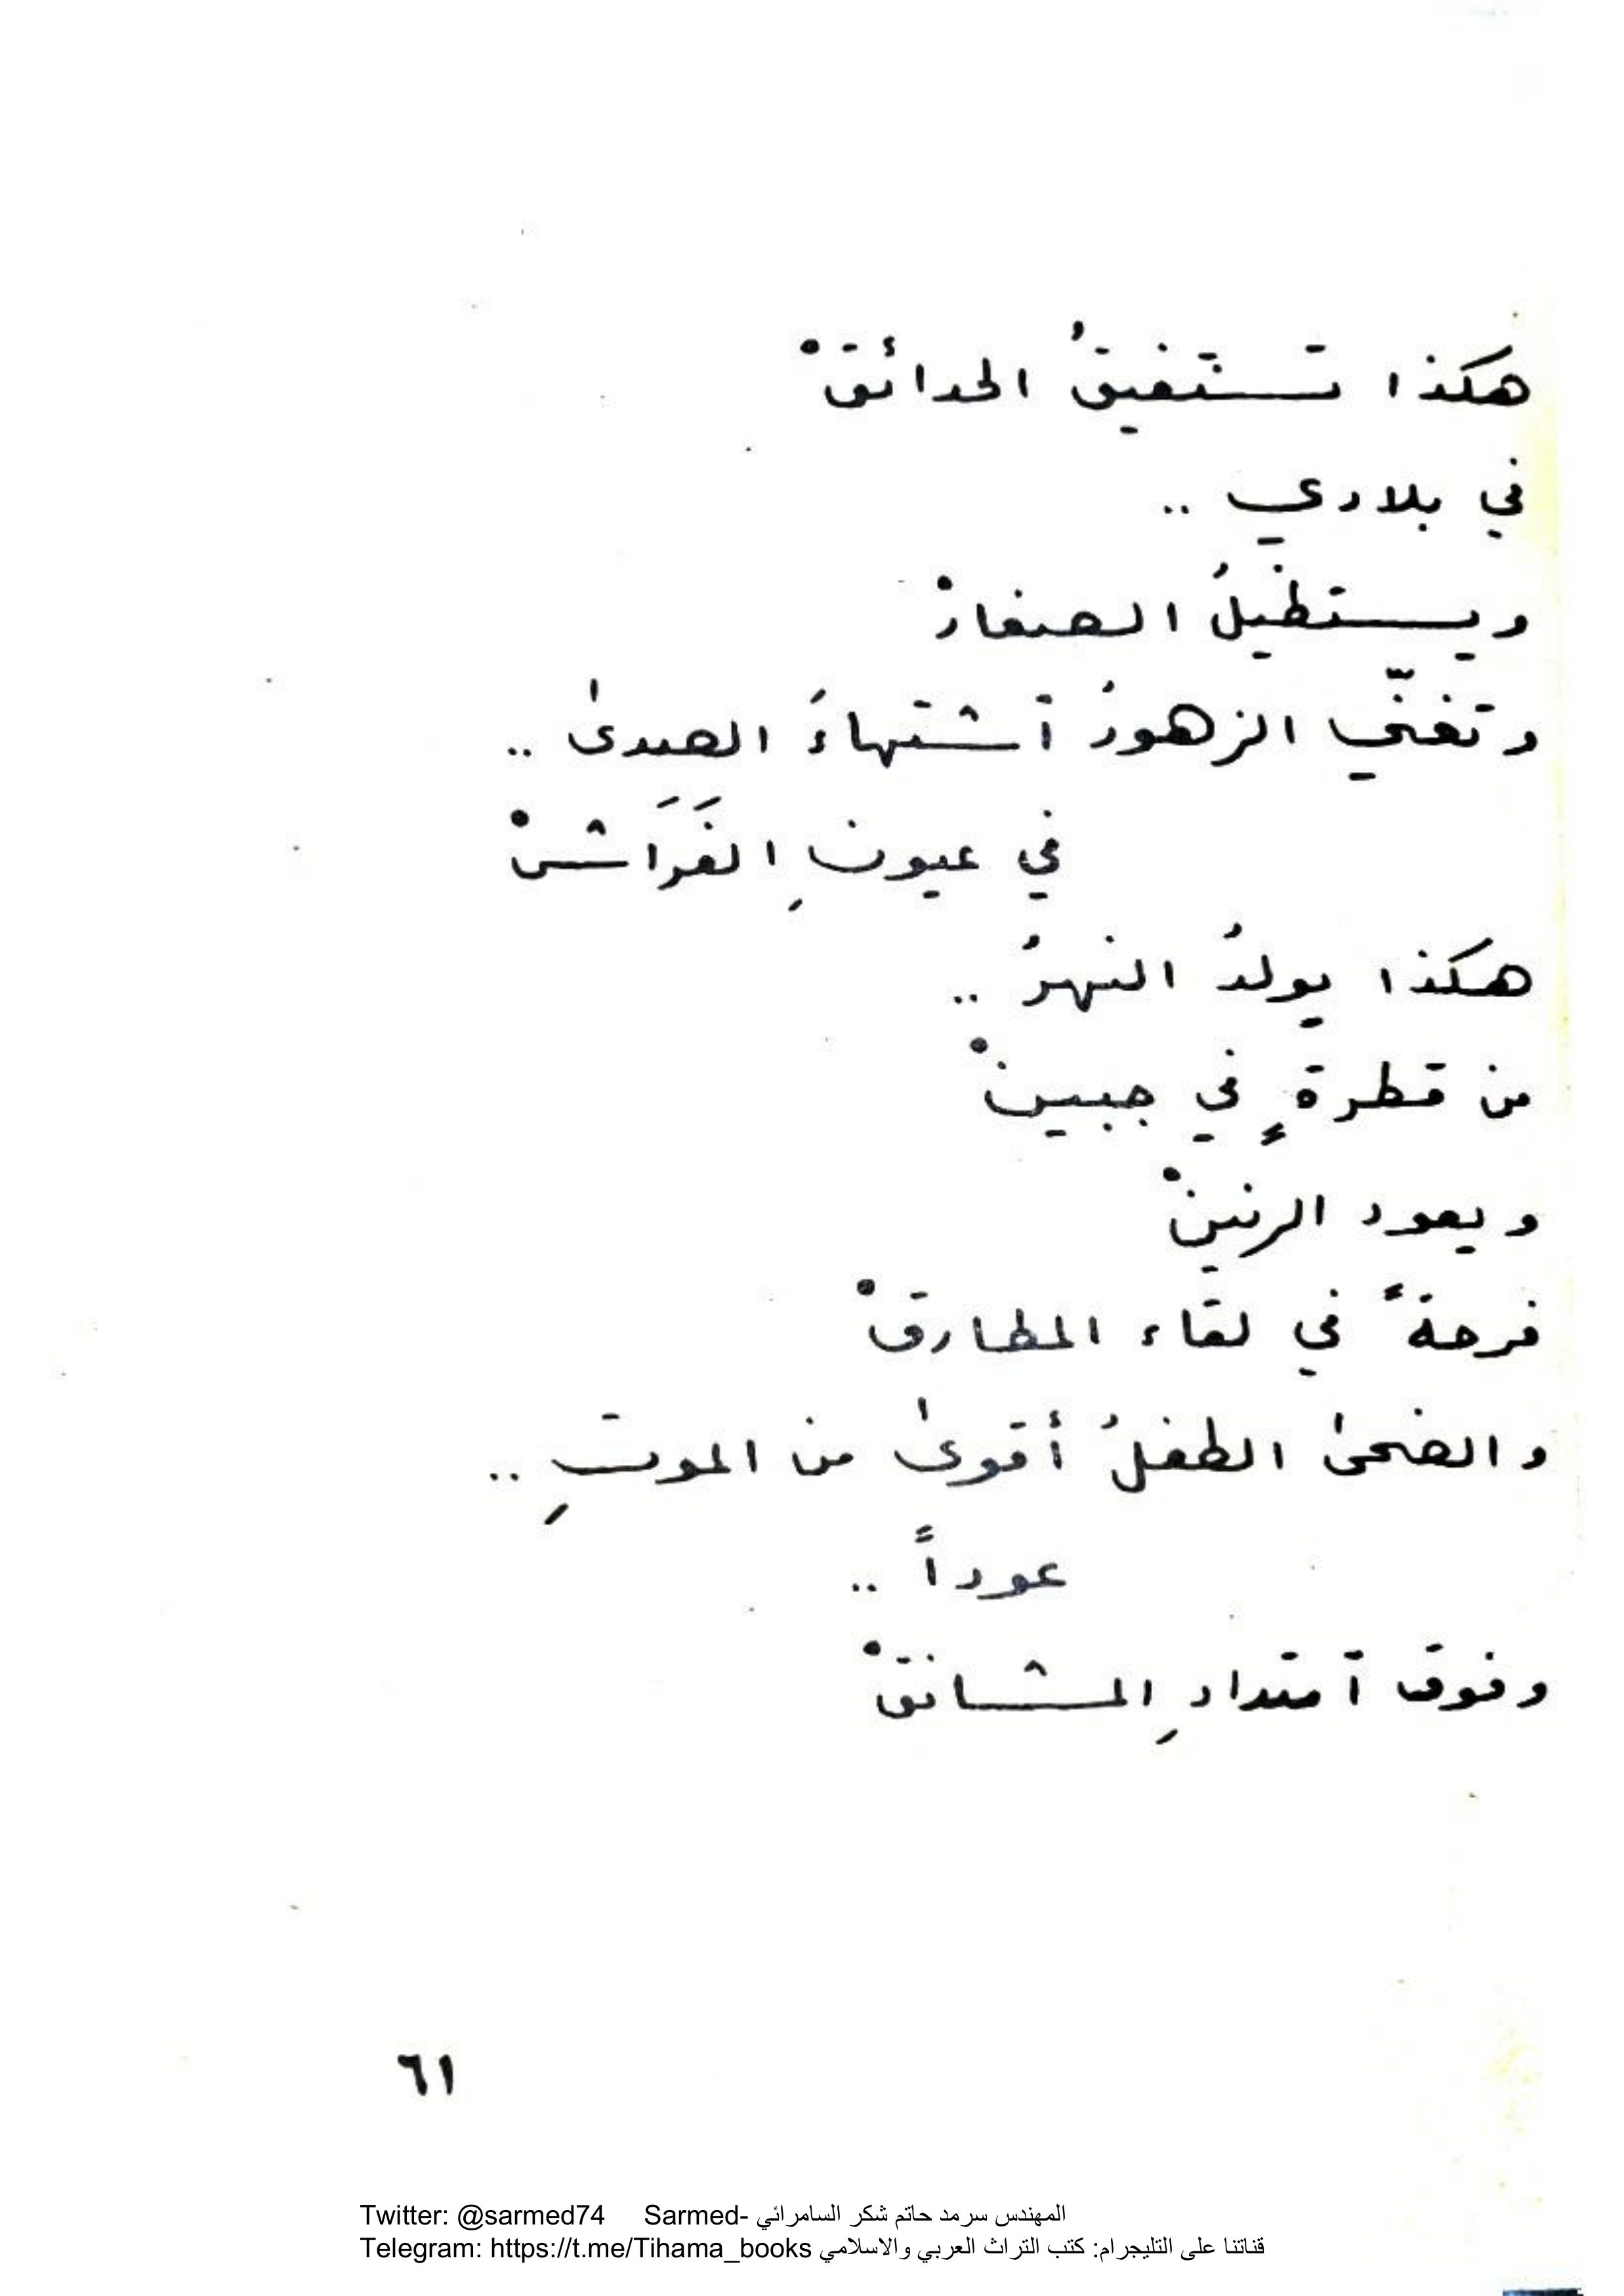 هكذا تستفيقُ الحدائقْ
في بلادي ..
ويستظيلُ الصغارْ
وتغنّي الزهورُ ٱشتهاءَ الصدىٰ ..
في عيونِ الفَرَاشْ
هكذا يولدُ النهرُ ..
من قطرةٍ في جبينْ
ويعود الرنينْ
فرحةً في لقاء المطارقْ
والضحىٰ الطفلُ أقوىٰ من الموتِ ..
عوداً ..
وفوق ٱمتدادِ المشانقْ
٦١
Twitter: @sarmed74 Sarmed- المهندس سرمد حاتم شكر السامرائي
Telegram: https://t.me/Tihama_books قناتنا على التليجرام: كتب التراث العربي والاسلامي